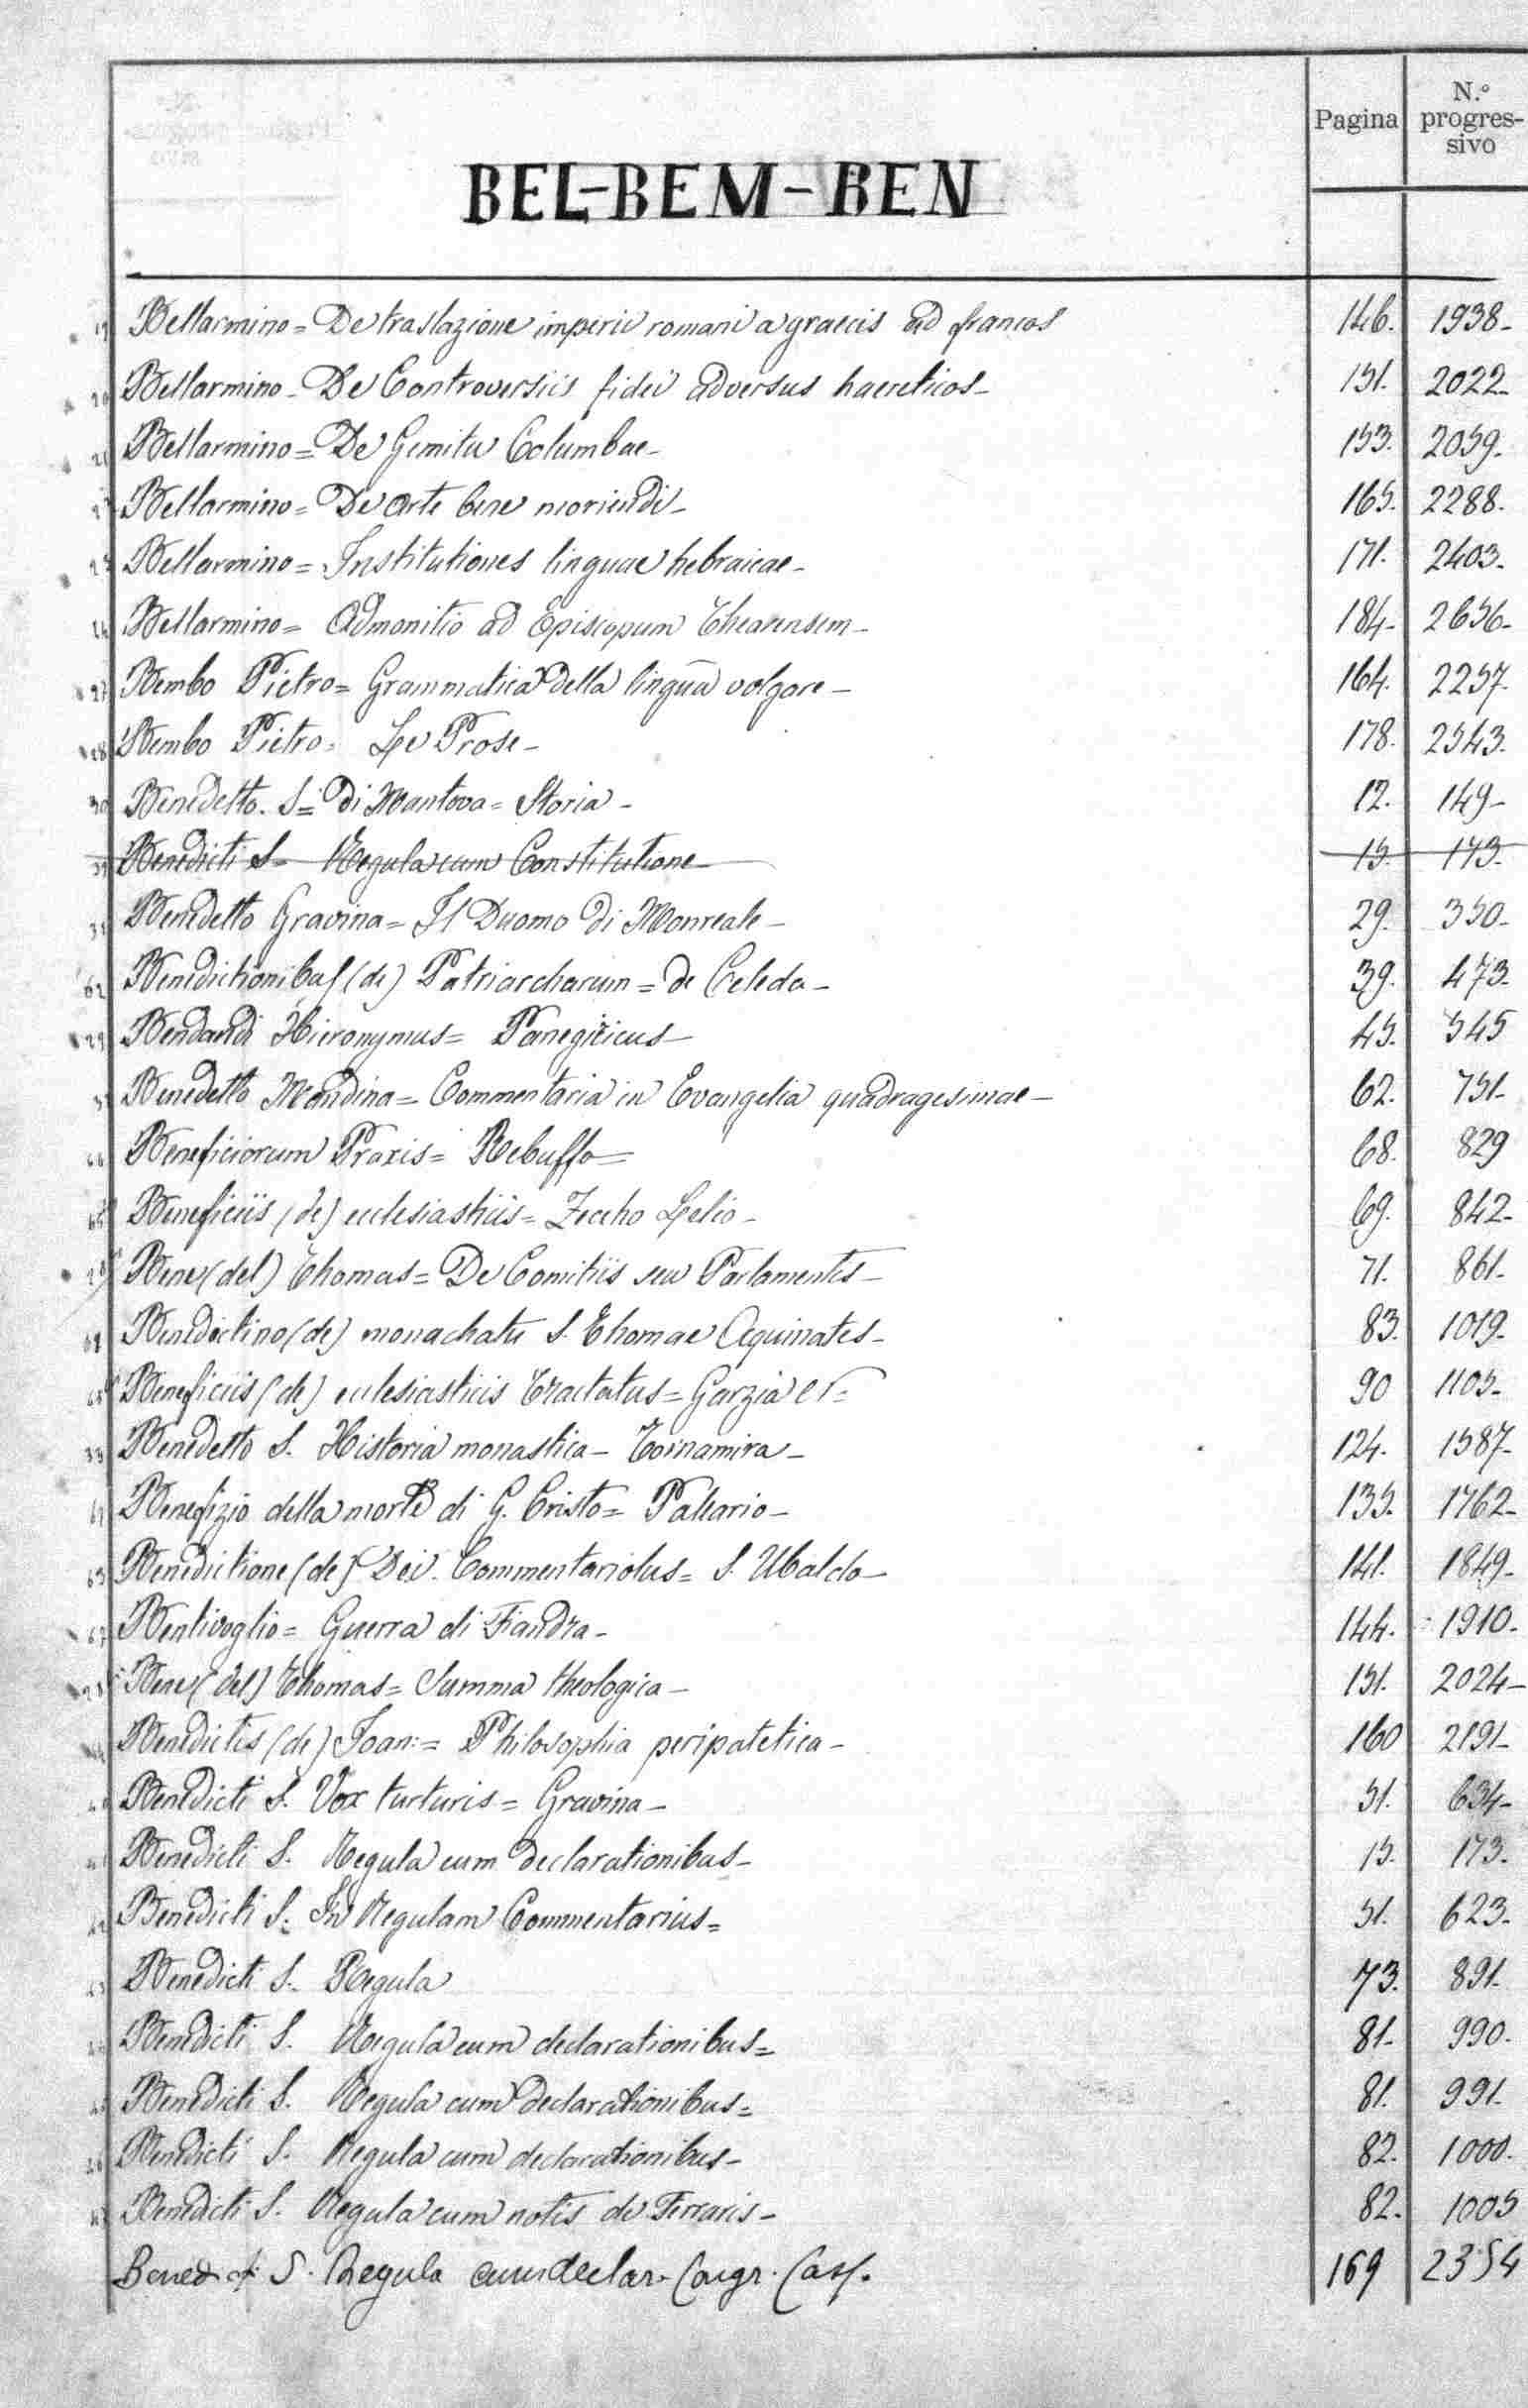 Pagina N.º progres-sivo
BEL-BEM-BEN
19 Bellarmino = De traslazione imperii romani a graecis ad francos 146. 1938-
20 Bellarmino - De Controversiis fidei adversus haereticos - 151. 2022-
21 Bellarmino = De Gemitu Columbae - 153. 2059-
22 Bellarmino = De arte bene moriendi - 165. 2288.
23 Bellarmino = Institutiones linguae hebraicae - 171. 2403.
24 Bellarmino = Admonitio ad Episcopum Theanensem - 184- 2656-
27 Bembo Pietro = Grammatica della lingua volgare - 164. 2257.
28 Bembo Pietro = Le Prose - 178. 2543.
30 Benedetto. S = di Mantova = Storia - 12. 149-
Benedicti S - Regula cum Constitutione 15. 173.
Benedetto Gravina = Il Duomo di Monreale - 29. 350-
62 Benedictionibus (de) Patriarcharum = de Celeda - 39. 473-
29 Bendandi Hieronymus = Panegiricus - 45. 545
Benedetto Mandina = Commentaria in Evangelia quadragesimae - 62. 751-
Beneficiorum Praxis = Rebuffo = 68. 829
Beneficiis (de) ecclesiasticis = Zeccho Lelio - 69. 842-
Bene (del) Thomas = De Comitiis seu Parlamentis - 71. 861-
61 Benedictino (de) monachatu S. Thomae Aquinates - 83. 1019-
Beneficiis (de) ecclesiasticis Tractatus = Garzia N = 90 1105-
33 Benedetto S. Historia monastica - Tornamira - 124. 1587-
Benefizio della morte di G. Cristo = Paleario - 135. 1762-
63 Benedictione (de) Dei. Commentariolus = S. Ubaldo - 141. 1849-
67 Bentivoglio = Guerra di Fiandra - 144. 1910-
Bene (del) Thomas = Summa theologica - 151. 2024-
Benedictis (de) Joan: = Philosophia peripatetica - 160 2191-
Benedicti S. Vox turturis = Gravina - 51. 634-
Benedicti S. Regula cum declarationibus - 15. 173.
Benedicti S. In Regulam Commentarius = 51. 623-
Benedicti S. Regula 73. 891-
Benedicti S. Regula cum declarationibus = 81- 990.
Benedicti S. Regula cum declarationibus = 81. 991-
Benedicti S. Regula cum declarationibus - 82. 1000.
Benedicti S. Regula cum notis de Ferraris - 82. 1005
Benedicti S. Regula cum declar. Congr. Cass. 169 2354